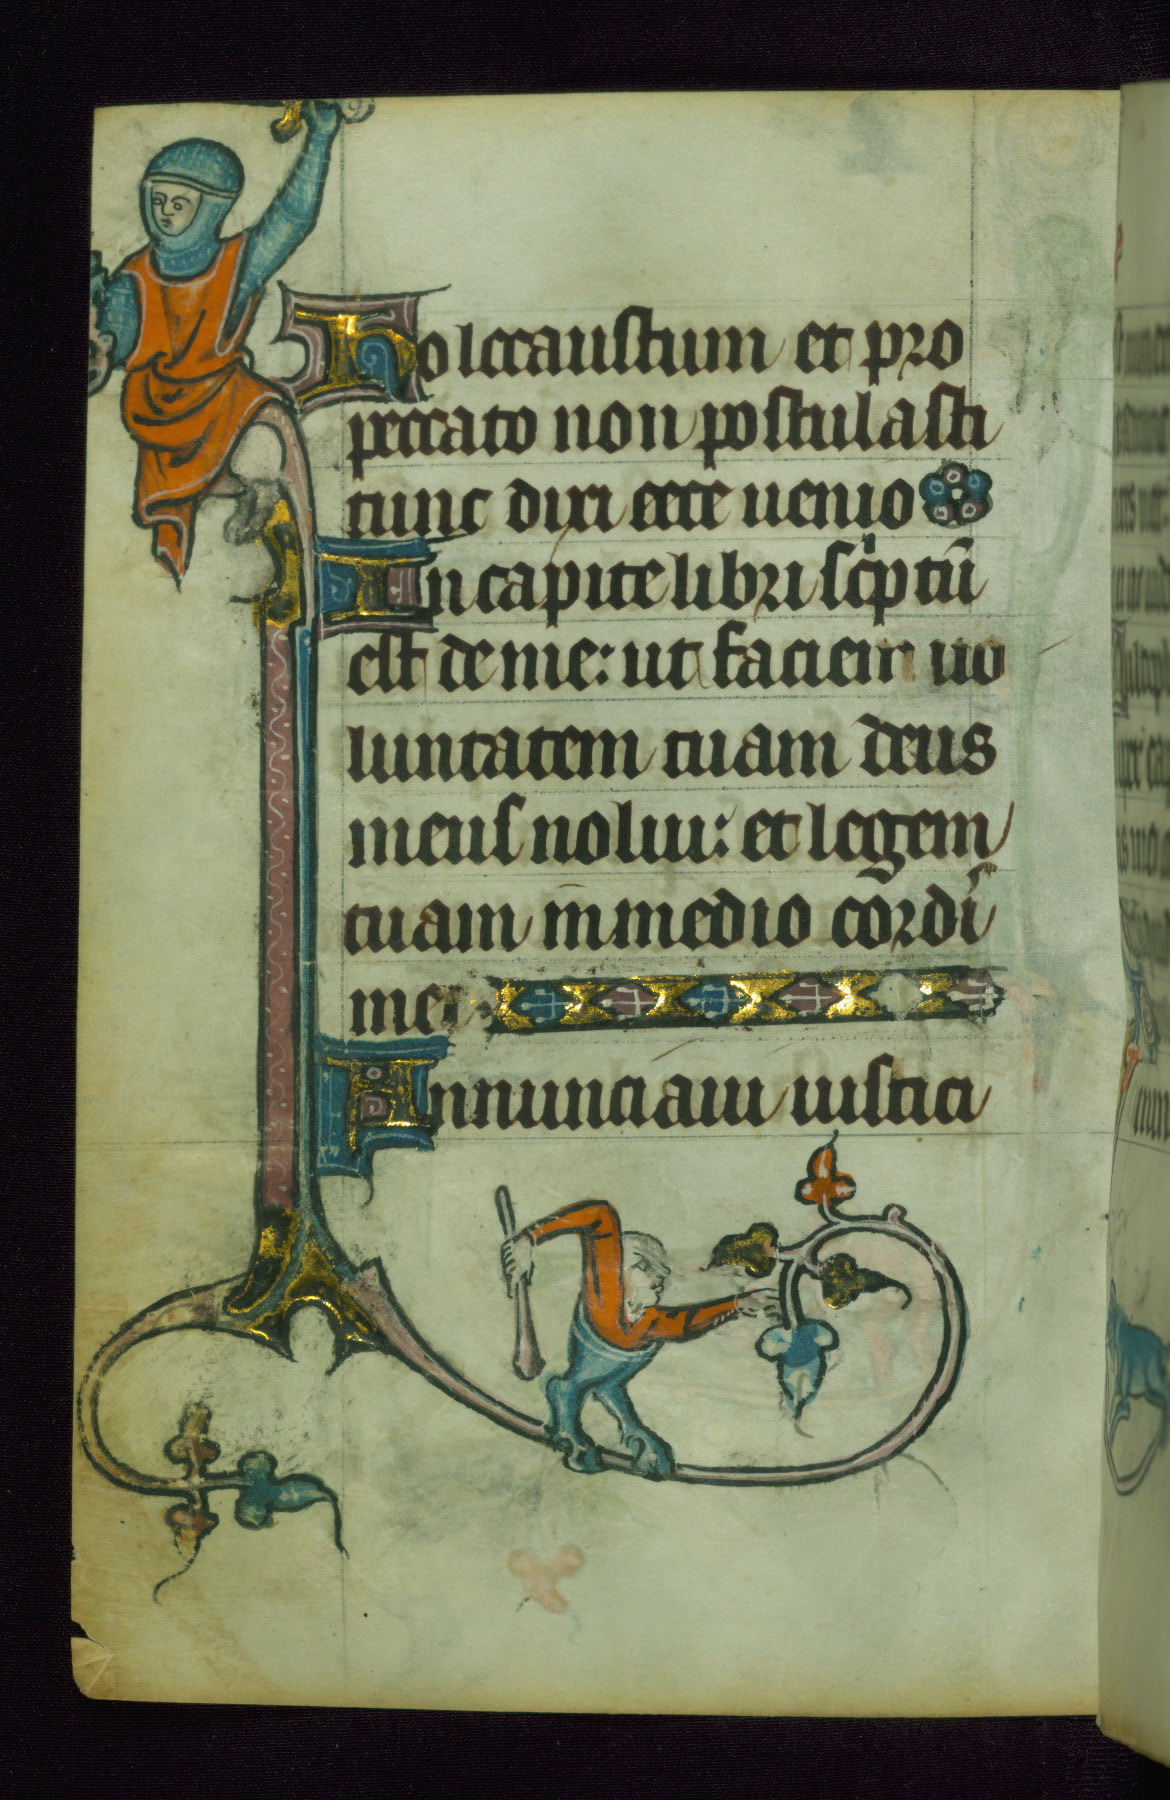 Holocaustum et pro
peccato non postulasti
tunc dixi ecce uenio
In capite libri scptū
est de me: ut faciem uo
luntatem tuam deus
meus nolui: et legem
tuam in medio cordis
mei
Annunciaui iustici